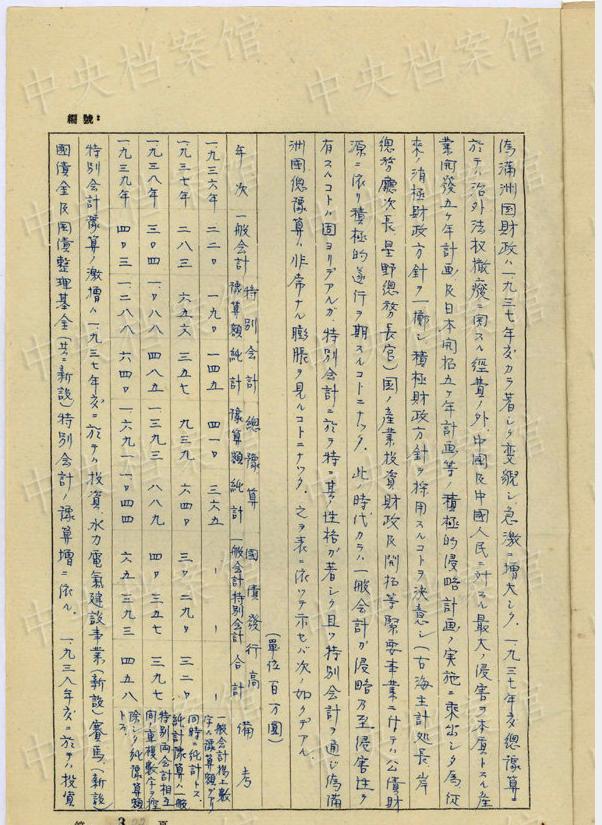 編號：
偽滿洲国財政ハ一九三七年度カラ著シク変貌シ急激ニ増大シタ。一九三七年度總豫算ニ
於テハ治外法权撤廢ニ関スル經費ノ外、中國及中國人民ニ対スル最大ノ侵害ヲ本質トスル産
業開發五ヶ年計画及日本開拓五ヶ年計画等ノ積極的侵略計画ノ実施ニ乘出シタ為従
來ノ消極財政方針ヲ一擲シ積極財政方針ヲ採用スルコトヲ決意シ(古海主計処長、岸
總務廳次長、星野總務長官)国ノ産業投資財政及開拓等緊要事業ニ付テハ公債財
源ニ依リ積極的遂行ヲ期スルコトニナッタ。此ノ時代カラハ一般会計ガ侵略乃至侵害性ヲ
有スルコトハ固ヨリデアルガ、特別会計ニ於テ特ニ其ノ性格ガ著シク且ツ特別会計ヲ通ジ偽滿
洲国總豫算ハ非常ナル膨脹ヲ見ルコトニナッタ。之ヲ表ニ依ッテ示セバ次ノ如クデアル。
(單位百万圓)
年次 一般会計 特別会計 總豫算 國債發行高 備考
豫算額 純計 豫算額 純計 一般会計 特別会計 合計
一九三六年 二二〇 一九〇 一四五 四一〇 三六五 - - -
一九三七年 二八三 六五六 三五七 九三九 六四〇 三〇 二九〇 三二〇
一九三八年 三〇四 一〇八八 四八五 一三九三 八八九 四〇 三五七 三九七
一九三九年 四〇三 一二八八 六四〇 一六九一 一〇四四 六五 三九三 四五八
一般会計揚上数
字ハ豫算額デアリ
同時ニ純計トス。
純計豫算ハ一般
特別兩会計相互
間ノ重複数字ヲ控
除シタ純豫算額
トス。
特別会計豫算ノ激增ハ一九三七年度ニ於テハ投資、水力電氣建設事業(新設)賽馬(新設)
國債金及国債整理基金(共ニ新設)特別会計ノ豫算增ニ依ル。一九三八年度ニ於テハ投資
中央档案馆